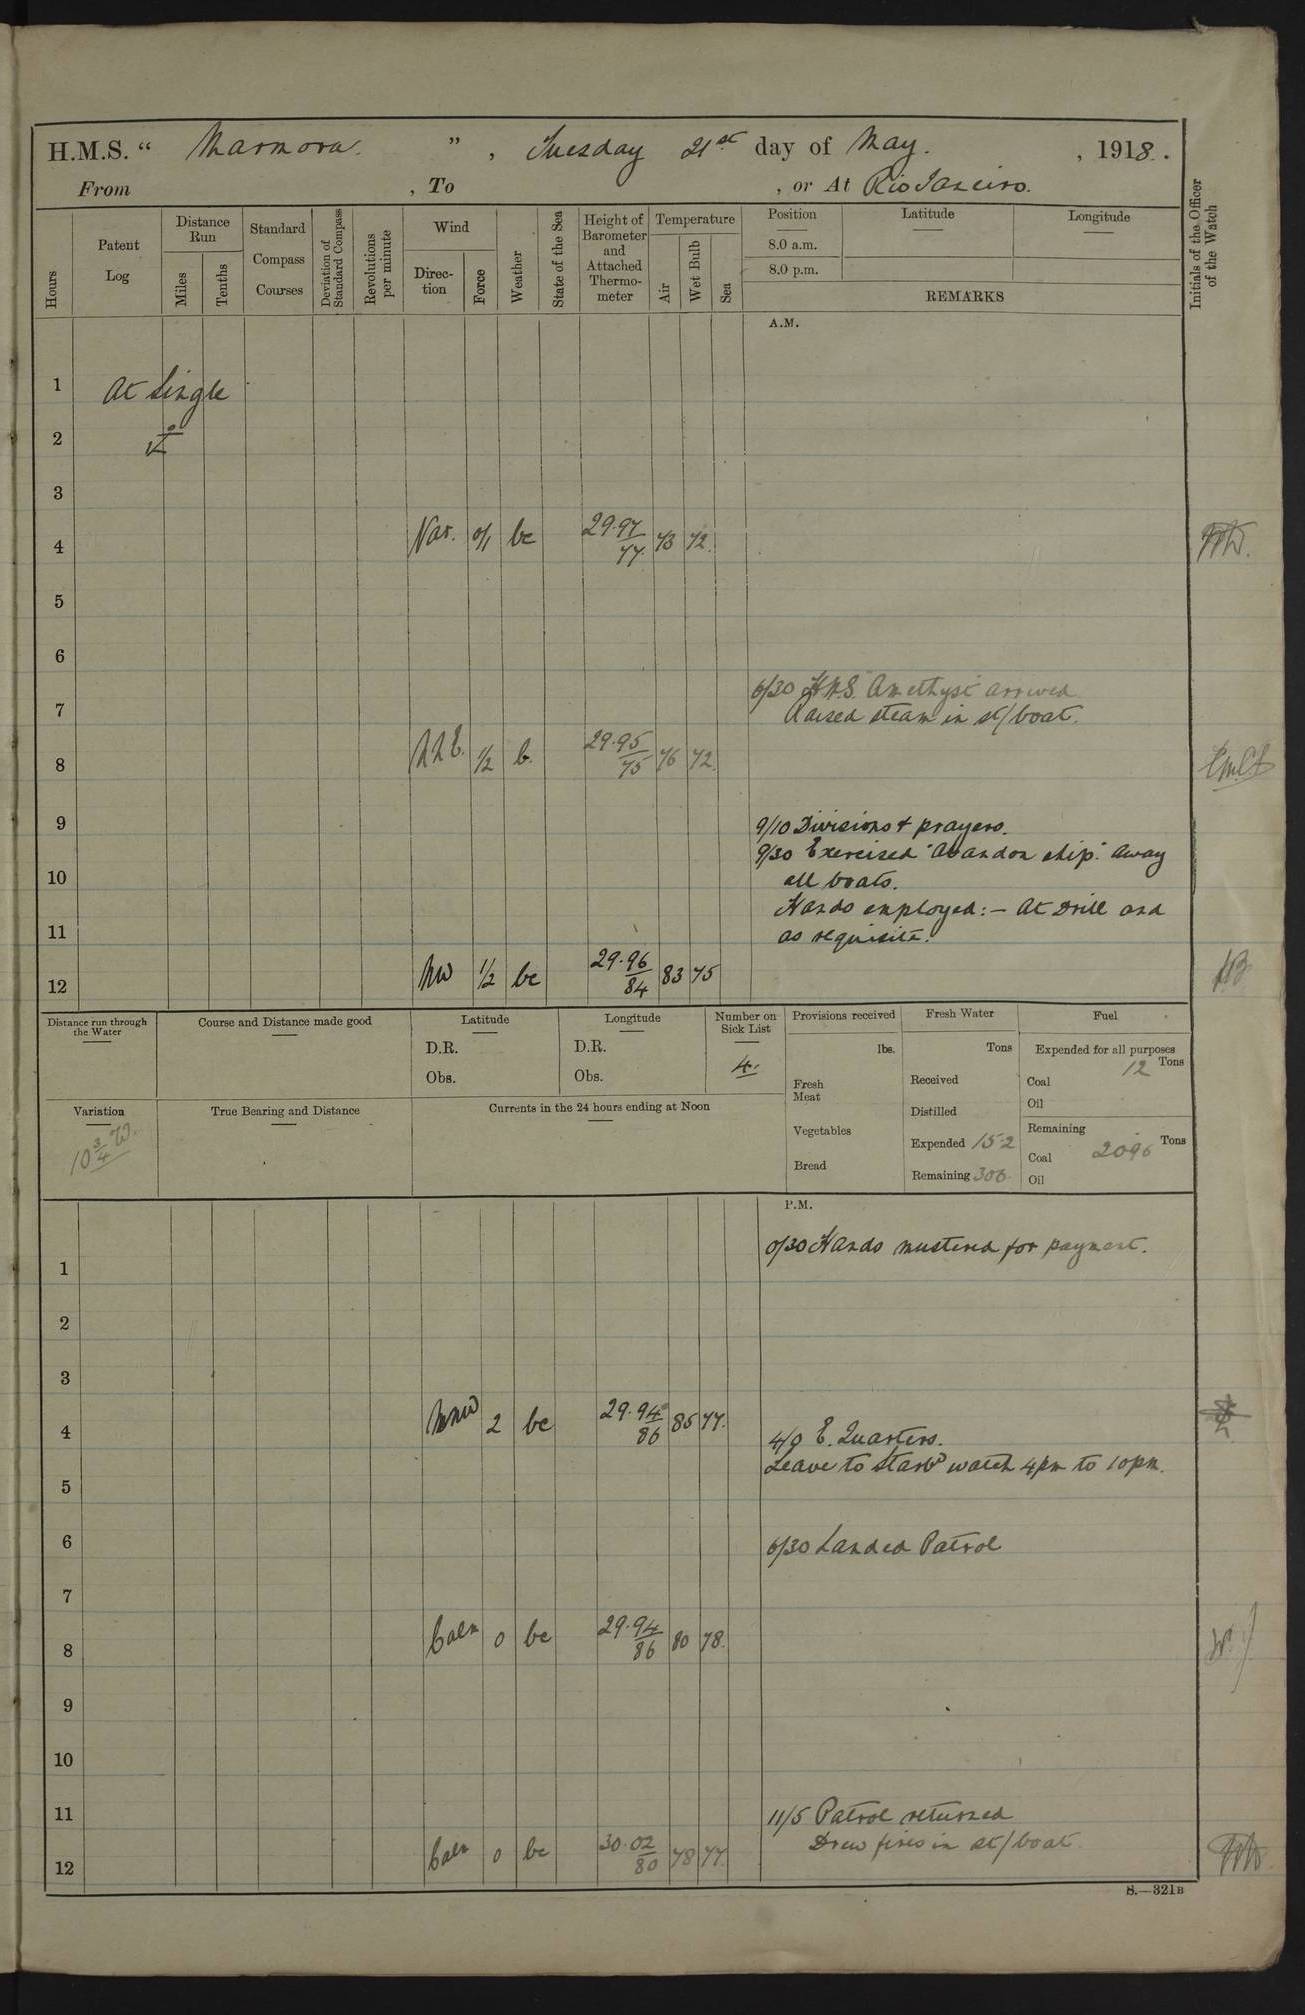 H.M.S. “ Marmora. ” , Tuesday 21st day of May. , 1918.
From , To , or At Rio Janeiro.
Hours
Patent Log
Distance Run
Miles
Tenths
Standard Compass Courses
Deviation of Standard Compass
Revolutions per minute
Wind
Direction
Force
Weather
State of the Sea
Height of Barometer and Attached Thermometer
Temperature
Air
Wet Bulb
Sea
Position
8.0 a.m.
8.0 p.m.
Latitude
Longitude
REMARKS
Initials of the Officer of the Watch
A.M.
1 At Single
2
3
4 Var. 0/1 bc 29.97 77 73 72
5
6
6/30 H.M.S. Amethyst arrived
7 Raised steam in st/boat.
8 NNE. 1/2 b. 29.95 75 76 72
9 9/10 Divisions & prayers.
9/30 Exercised "Abandon ship." Away
10 all boats.
Hands employed:- At Drill and
11 as requisite.
12 NW 1/2 bc 29.96 84 83 75
Distance run through the Water
Course and Distance made good
Latitude
D.R.
Obs.
Longitude
D.R.
Obs.
Number on Sick List
4.
Provisions received
lbs.
Fresh Meat
Vegetables
Bread
Fresh Water
Tons
Received
Distilled
Expended 152
Remaining 306
Fuel
Expended for all purposes
Tons
Coal 12
Oil
Remaining
Tons
Coal 2096
Oil
Variation
10 3/4 W.
True Bearing and Distance
Currents in the 24 hours ending at Noon
P.M.
0/30 Hands mustered for payment.
1
2
3
4 NNW 2 bc 29.94 86 86 77.
4/0 E. Quarters.
Leave to Starbd watch 4pm to 10pm.
5
6 6/30 Landed Patrol
7
8 Calm 0 bc 29.94 86 80 78.
9
10
11 11/5 Patrol returned
Drew fires in st/boat
12 Calm 0 bc 30.02 80 78 77
S.—321B